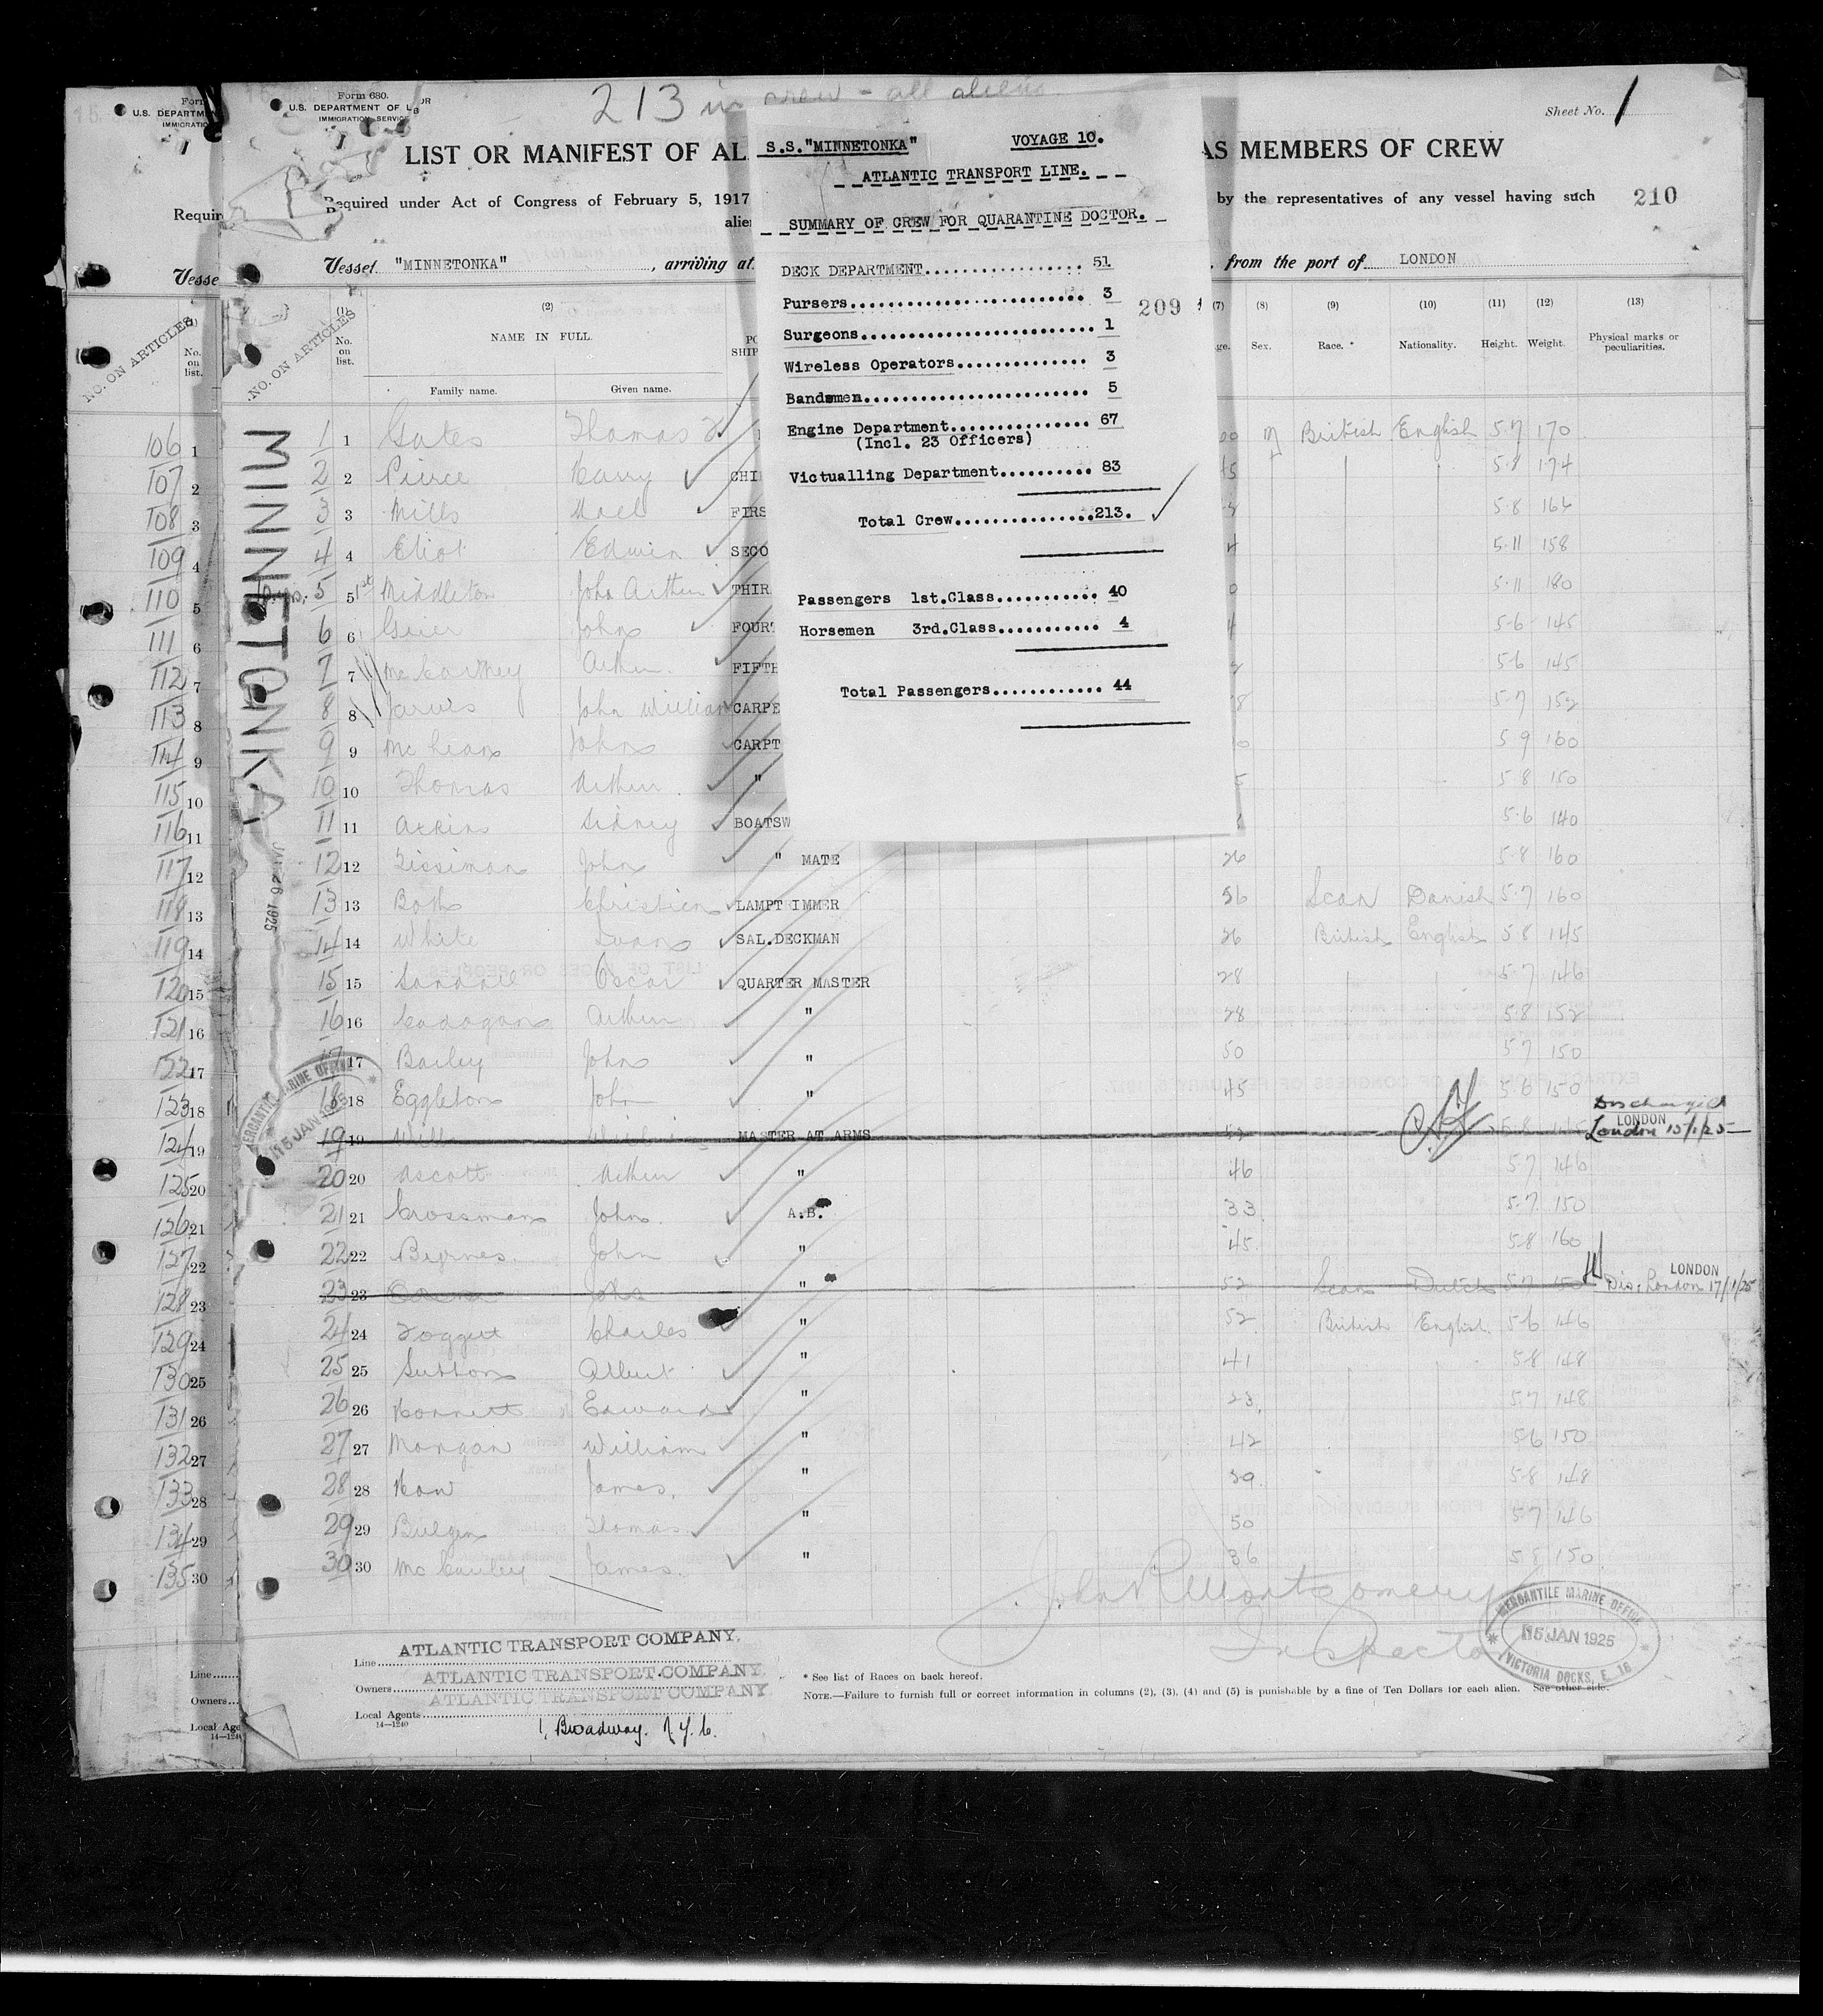 213 in crew - all aliens
Form 680.
U.S. DEPARTMENT OF LABOR
IMMIGRATION SERVICE
Sheet No. 1
LIST OR MANIFEST OF AL
AS MEMBERS OF CREW
Required under Act of Congress of February 5, 1917
by the representatives of any vessel having such
210
alien
Vessel "MINNETONKA", arriving at
, from the port of LONDON
S.S."MINNETONKA" VOYAGE 10.
ATLANTIC TRANSPORT LINE.
SUMMARY OF CREW FOR QUARANTINE DOCTOR.
DECK DEPARTMENT 51
Pursers 3
209
Surgeons 1
Wireless Operators 3
Bandsmen 5
Engine Department 67
(Incl. 23 Officers)
Victualling Department 83
Total Crew 213.
Passengers 1st.Class 40
Horsemen 3rd.Class 4
Total Passengers 44
NO. ON ARTICLES
(1) (2) (7) (8) (9) (10) (11) (12) (13)
No. on list. NAME IN FULL. Sex. Race. * Nationality. Height. Weight. Physical marks or peculiarities.
Family name. Given name.
MINNETONKA
JAN 26 1925
1 1 Gates Thomas M British English 5.7 170
2 2 Pierce Harry CHI 5.8 174
3 3 Mills Noel FIRS 5.8 166
4 4 Eliot Edwin SECO 5.11 158
5 5 1st Middleton John Arthur THIR 5.11 180
6 6 Geier John FOURT 5.6 145
7 7 McCarthey Arthur FIFTH 5.6 145
8 8 Jarvis John William CARPE 5.7 152
9 9 McLean John CARPT 5.9 160
10 10 Thomas Arthur " 5.8 150
11 11 Axkins Sidney BOATSW 5.6 140
12 12 Tissiman John " MATE 26 5.8 160
13 13 Both Christian LAMPTRIMMER 56 Scan Danish 5.7 160
14 14 White SAL.DECKMAN 26 British English 5.8 145
15 15 Oscar QUARTER MASTER 28 5.7 146
16 16 Cadogan Arthur " 28 5.8 152
17 17 Bailey John " 50 5.7 150
18 18 Eggleton John " 45 5.6 150
19 19 MASTER AT ARMS 5.8 Discharged LONDON London 15/1/25
20 20 Ascott Arthur " 46 5.7 146
21 21 Crossman John A.B. 33 5.7 150
22 22 Byrnes John " 45 5.8 160
23 23 John " 52 Scan Dutch 5.7 150 LONDON Dis: London 17/1/25
24 24 Foggett Charles " 52 British English 5.6 146
25 25 Sutton Albert " 41 5.8 148
26 26 Edward " 23 5.7 148
27 27 Morgan William " 42 5.6 150
28 28 How James " 39 5.8 148
29 29 Bulgin Thomas " 50 5.7 146
30 30 McCauley James " 36 5.8 150
John R Montgomery
Inspector
MERCANTILE MARINE OFFICE
15 JAN 1925
VICTORIA DOCKS, E. 16
MERCANTILE MARINE OFFICE
15 JAN 1925
Line ATLANTIC TRANSPORT COMPANY.
Owners ATLANTIC TRANSPORT COMPANY
ATLANTIC TRANSPORT COMPANY
Local Agents
14—1240
1, Broadway. N.Y.C.
* See list of Races on back hereof.
NOTE.—Failure to furnish full or correct information in columns (2), (3), (4) and (5) is punishable by a fine of Ten Dollars for each alien. See other side.
Form
U.S. DEPARTM
IMMIGRATIO
Requir
Vesse
NO. ON ARTICLES
No. on list.
106 1
107 2
108 3
109 4
110 5
111 6
112 7
113 8
114 9
115 10
116 11
117 12
118 13
119 14
120 15
121 16
122 17
123 18
124 19
125 20
126 21
127 22
128 23
129 24
130 25
131 26
132 27
133 28
134 29
135 30
Line
Owners
Local Age
14—124